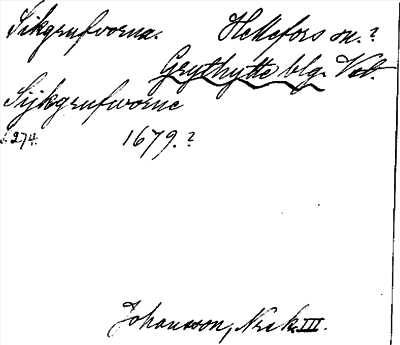 Sikgrufvorna. Hellefors sn.?
Grythytte blg. Vstl.
Sijkgrufworne
s. 274. 1679.?
Johansson, Norak. III.